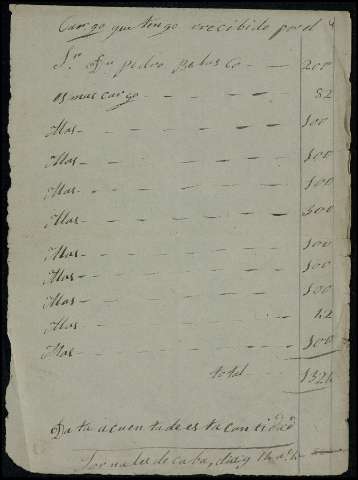 Cargo que tengo recibido por el
Sr. Dn pedro Belosco — 200
es mas cargo — 82
Mas — 100
Mas — 100
Mas — 100
Mas — 300
Mas — 100
Mas — 100
Mas — 100
Mas — 42
Mas — 100
total — 1324
Data acuenta de esta cantidad
Jornales de caba,